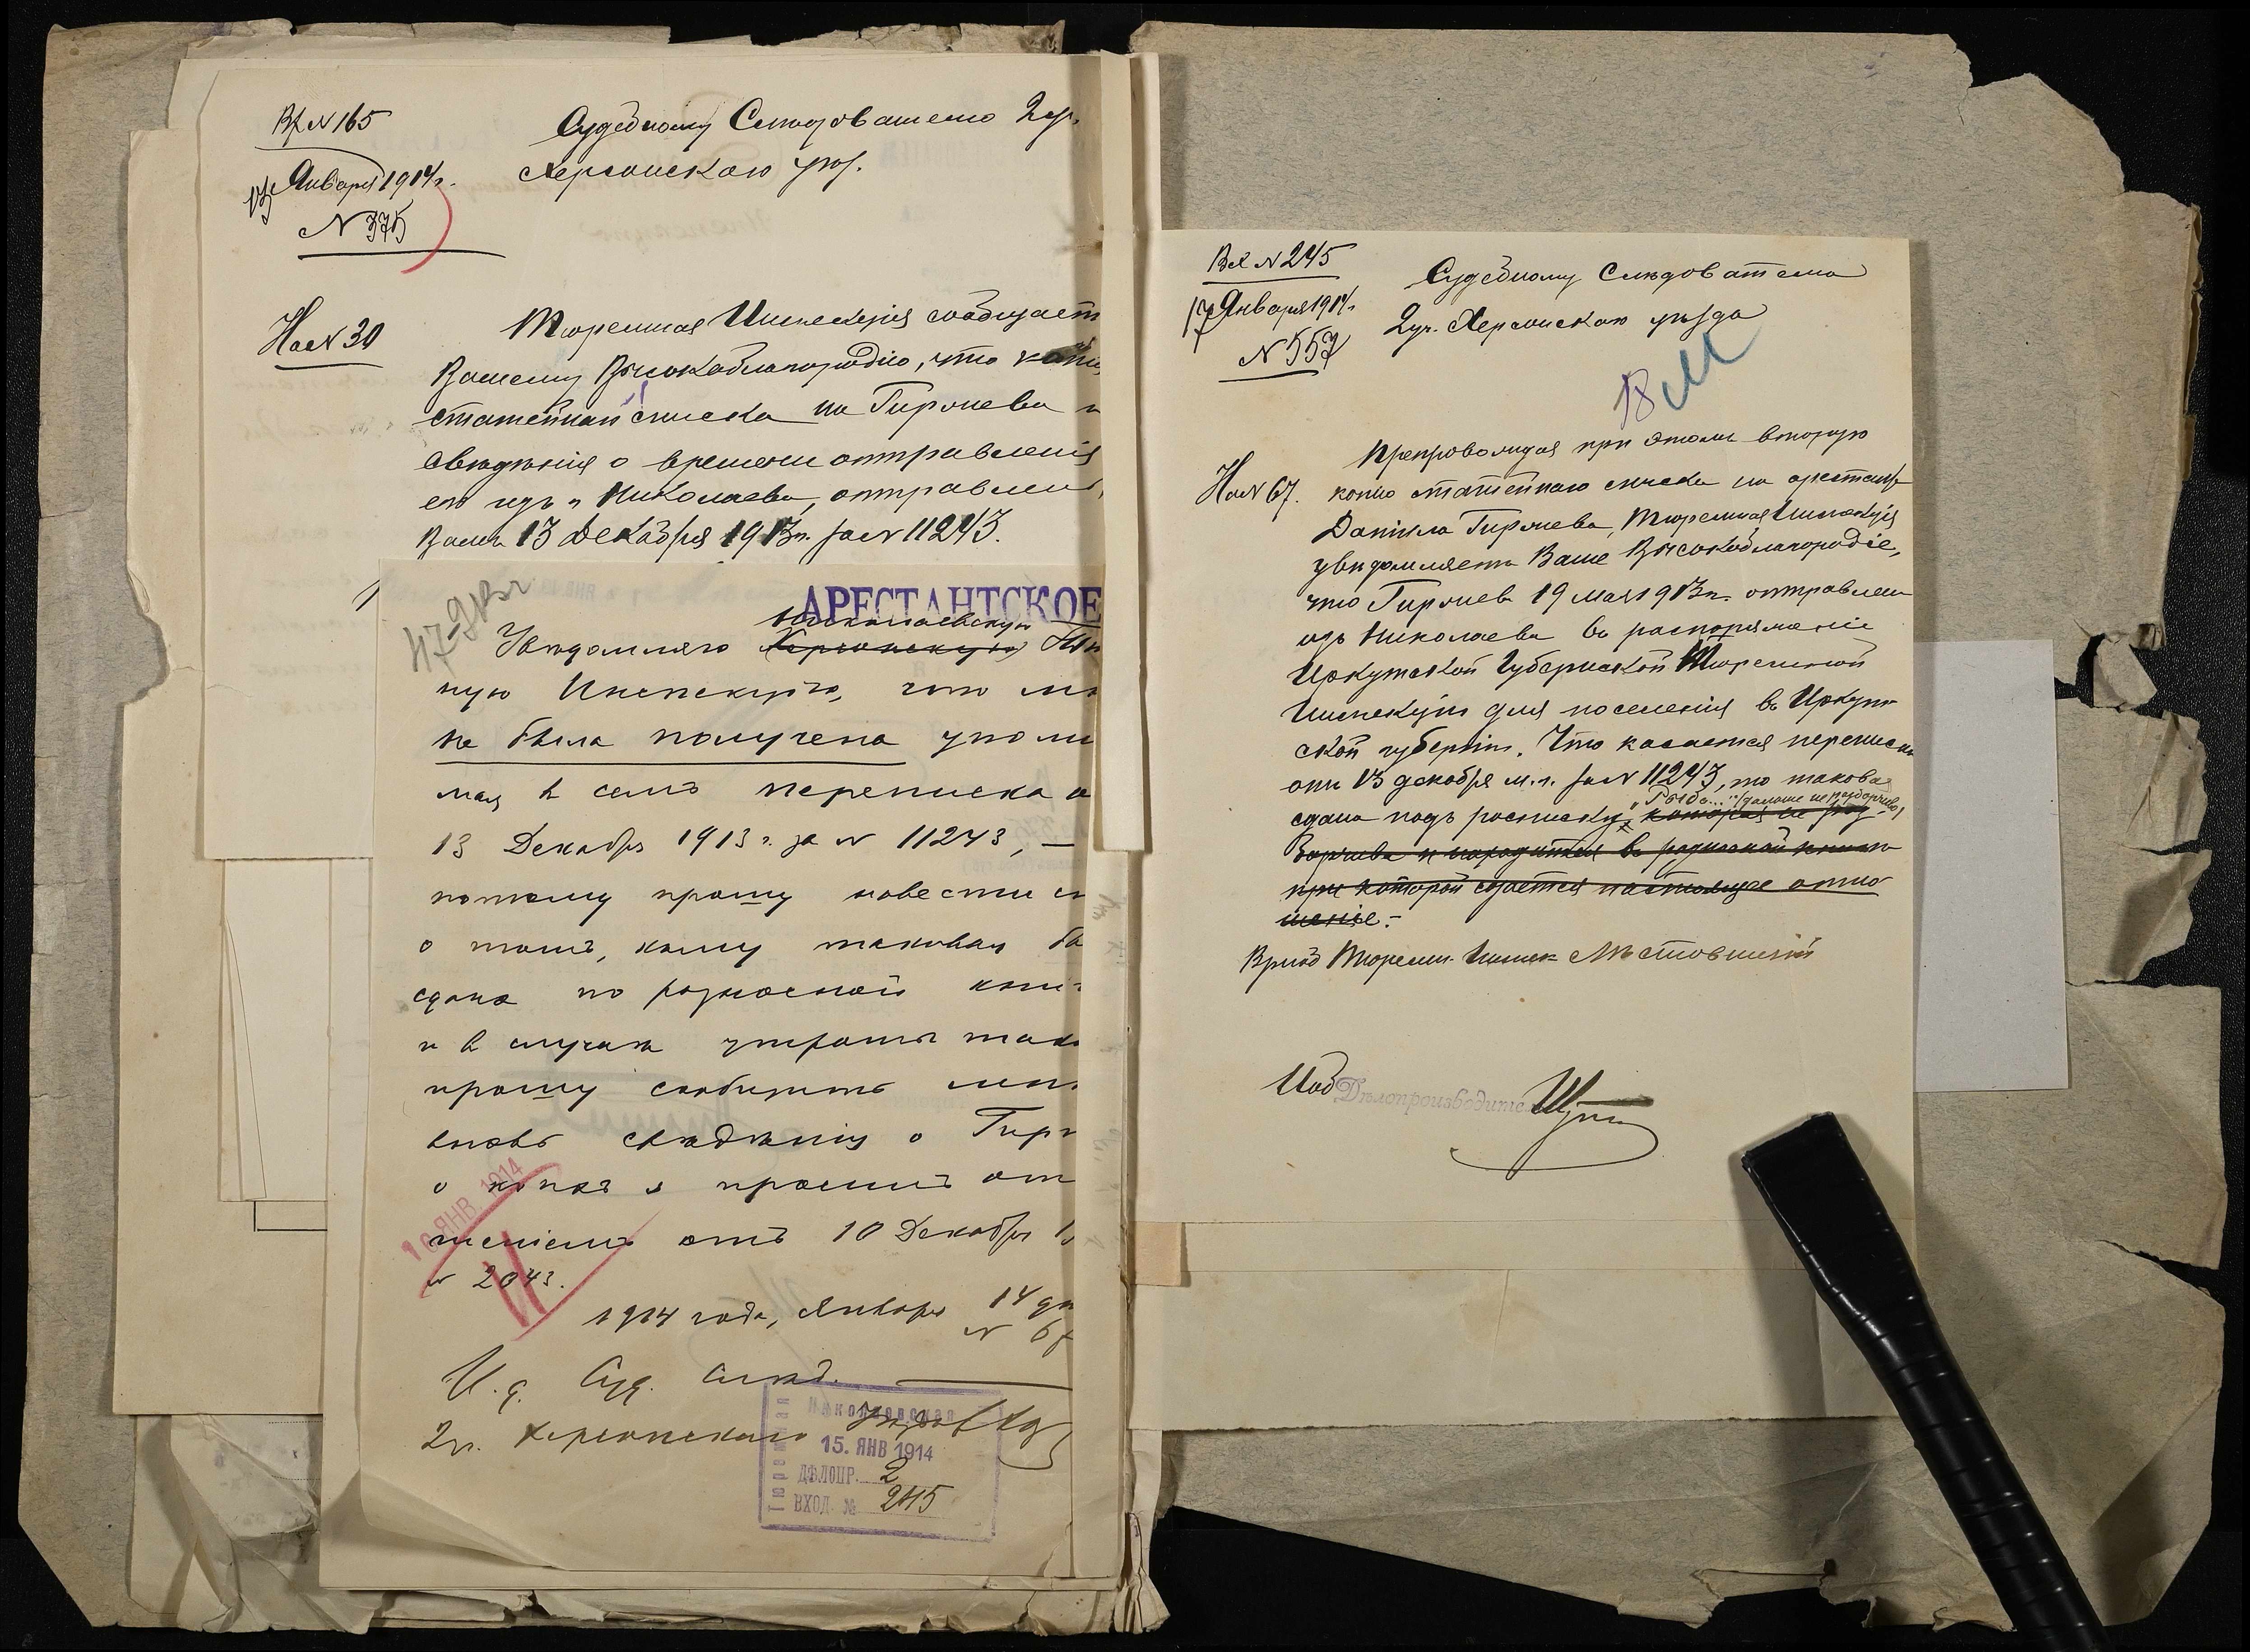 Вх N 165
13 Января 1914 г.
N 375
Судебному Следователю 2 уч.
Херсонскаго уѣз.
На N 30
Тюремная Инспекція сообщаетъ
Вашему Высокоблагородію, что копія
статейнаго списка на Гиржева и
свѣдѣнія о времени отправленія
его изъ г. Николаева, отправлены
Вамъ 13 Декабря 1913 г. за N 11243.
АРЕСТАНТСКОЕ
Николаевскую
Увѣдомляю Херсонскую Тю
ную Инспекцію, что мн
не была получена упом
мая въ семъ переписка о
13 Декабря 1913 г. за N 11243, —
потому прошу навести сп
о томъ, кому таковая бы
сдана по разносной кни
и въ случаѣ утраты тако
прошу сообщить мнѣ
вновь свѣдѣнія о Гирж
о коихъ я просилъ отн
шеніемъ отъ 10 Декабря 19
N 2043.
16 ЯНВ 1914
1914 года, Января 14 дн
N 67
И. д. Суд. Слѣд.
2 уч. Херсонскаго
Николаевская
Тюремная
15. ЯНВ 1914
ДѢЛОПР. 2
ВХОД. № 245
Вх N 245
17 Января 1914 г.
N 557
Судебному Слѣдователю
2 уч. Херсонскаго уѣзда
18
На N 67.
Препровождая при этомъ вторую
копію статейнаго списка на арестанта
Данила Гиржева, Тюремная Инспекція
увѣдомляетъ Ваше Высокоблагородіе,
что Гиржевъ 19 мая 1913 г. отправленъ
изъ Николаева въ распоряженіе
Иркутской Губернской Тюремной
Инспекціи для поселенія въ Иркут
ской губерніи. Что касается переписки
отъ 13 декабря м. г. за N 11243, то таковая
"Рыба..." (дальше не разборчиво)
сдана подъ росписку, которая не раз
борчива и находится въ разносной книгѣ
при которой сдается настоящее отно
шеніе. -
Врид Тюремн. Инспек
Иод Дѣлопроизводите